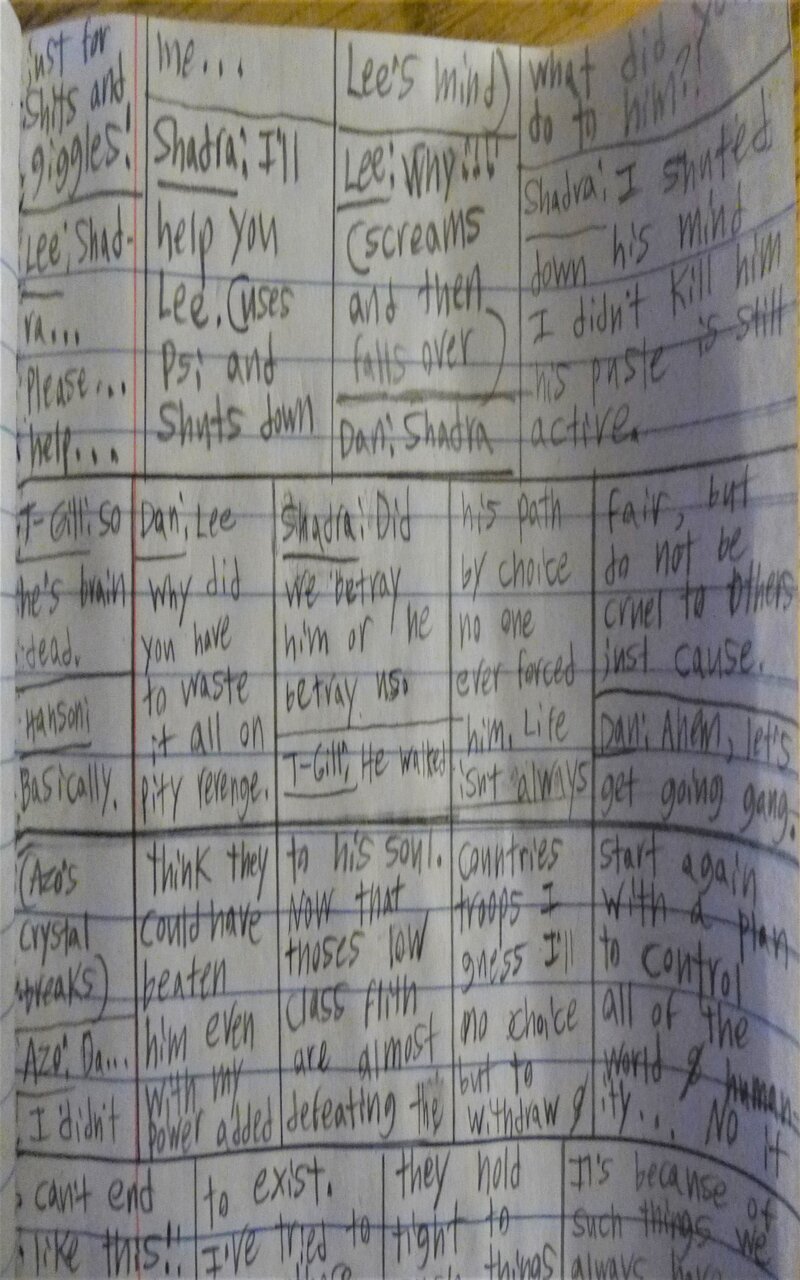 just for
shits and
giggles!
Lee: Shad-
ra...
Please...
help...
me...
Shadra: I'll
help you
Lee. (uses
Psi and
shuts down
Lee's mind)
Lee: Why!!!
(screams
and then
falls over)
Dan: Shadra
what did you
do to him?!
Shadra: I shuted
down his mind
I didn't kill him
his pusle is still
active.
T-Gill: so
he's brain
dead.
Hanson:
Basically.
Dan: Lee
why did
you have
to waste
it all on
pity revenge.
Shadra: Did
we betray
him or he
betray us.
T-Gill: He walked
his path
by choice
no one
ever forced
him. Life
isnt always
fair, but
do not be
cruel to others
just cause.
Dan: Ahem, let's
get going gang.
(Azo's
crystal
breaks)
Azo: Da...
I didn't
think they
could have
beaten
him even
with my
power added
to his soul.
Now that
thoses low
class flith
are almost
defeating the
countries
troops I
guess I'll
no choice
but to
withdraw &
start again
with a plan
to control
all of the
world & human-
ity... No it
can't end
like this!!
to exist.
I've tried to
they hold
tight to
things
It's because of
such things we
always have